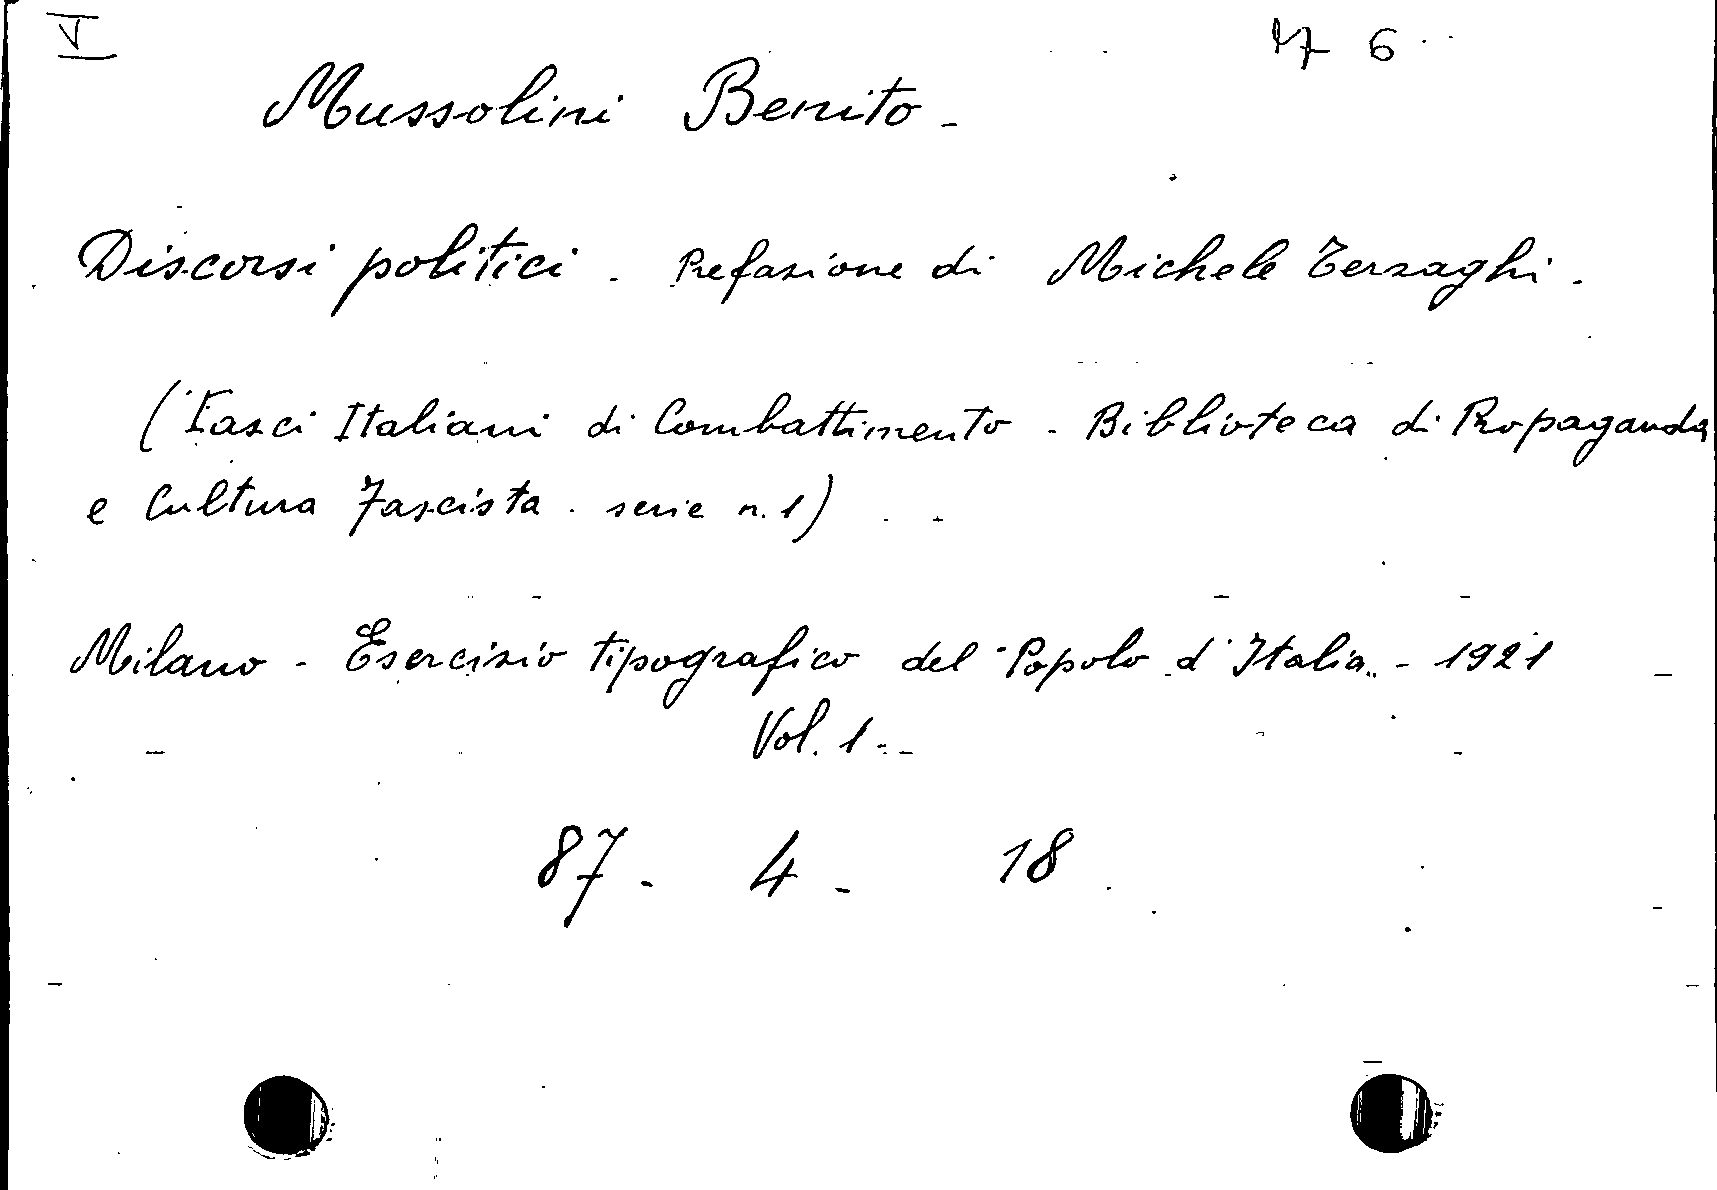 V
Mussolini Benito -
Discorsi politici. Prefazione di Michele Terzaghi.
(Fasci Italiani di Combattimento - Biblioteca di Propaganda
e Cultura Fascista. serie n. 1)
Milano - Esercizio tipografico del "Popolo d'Italia" - 1921
Vol. 1 -
87 - 4 - 18